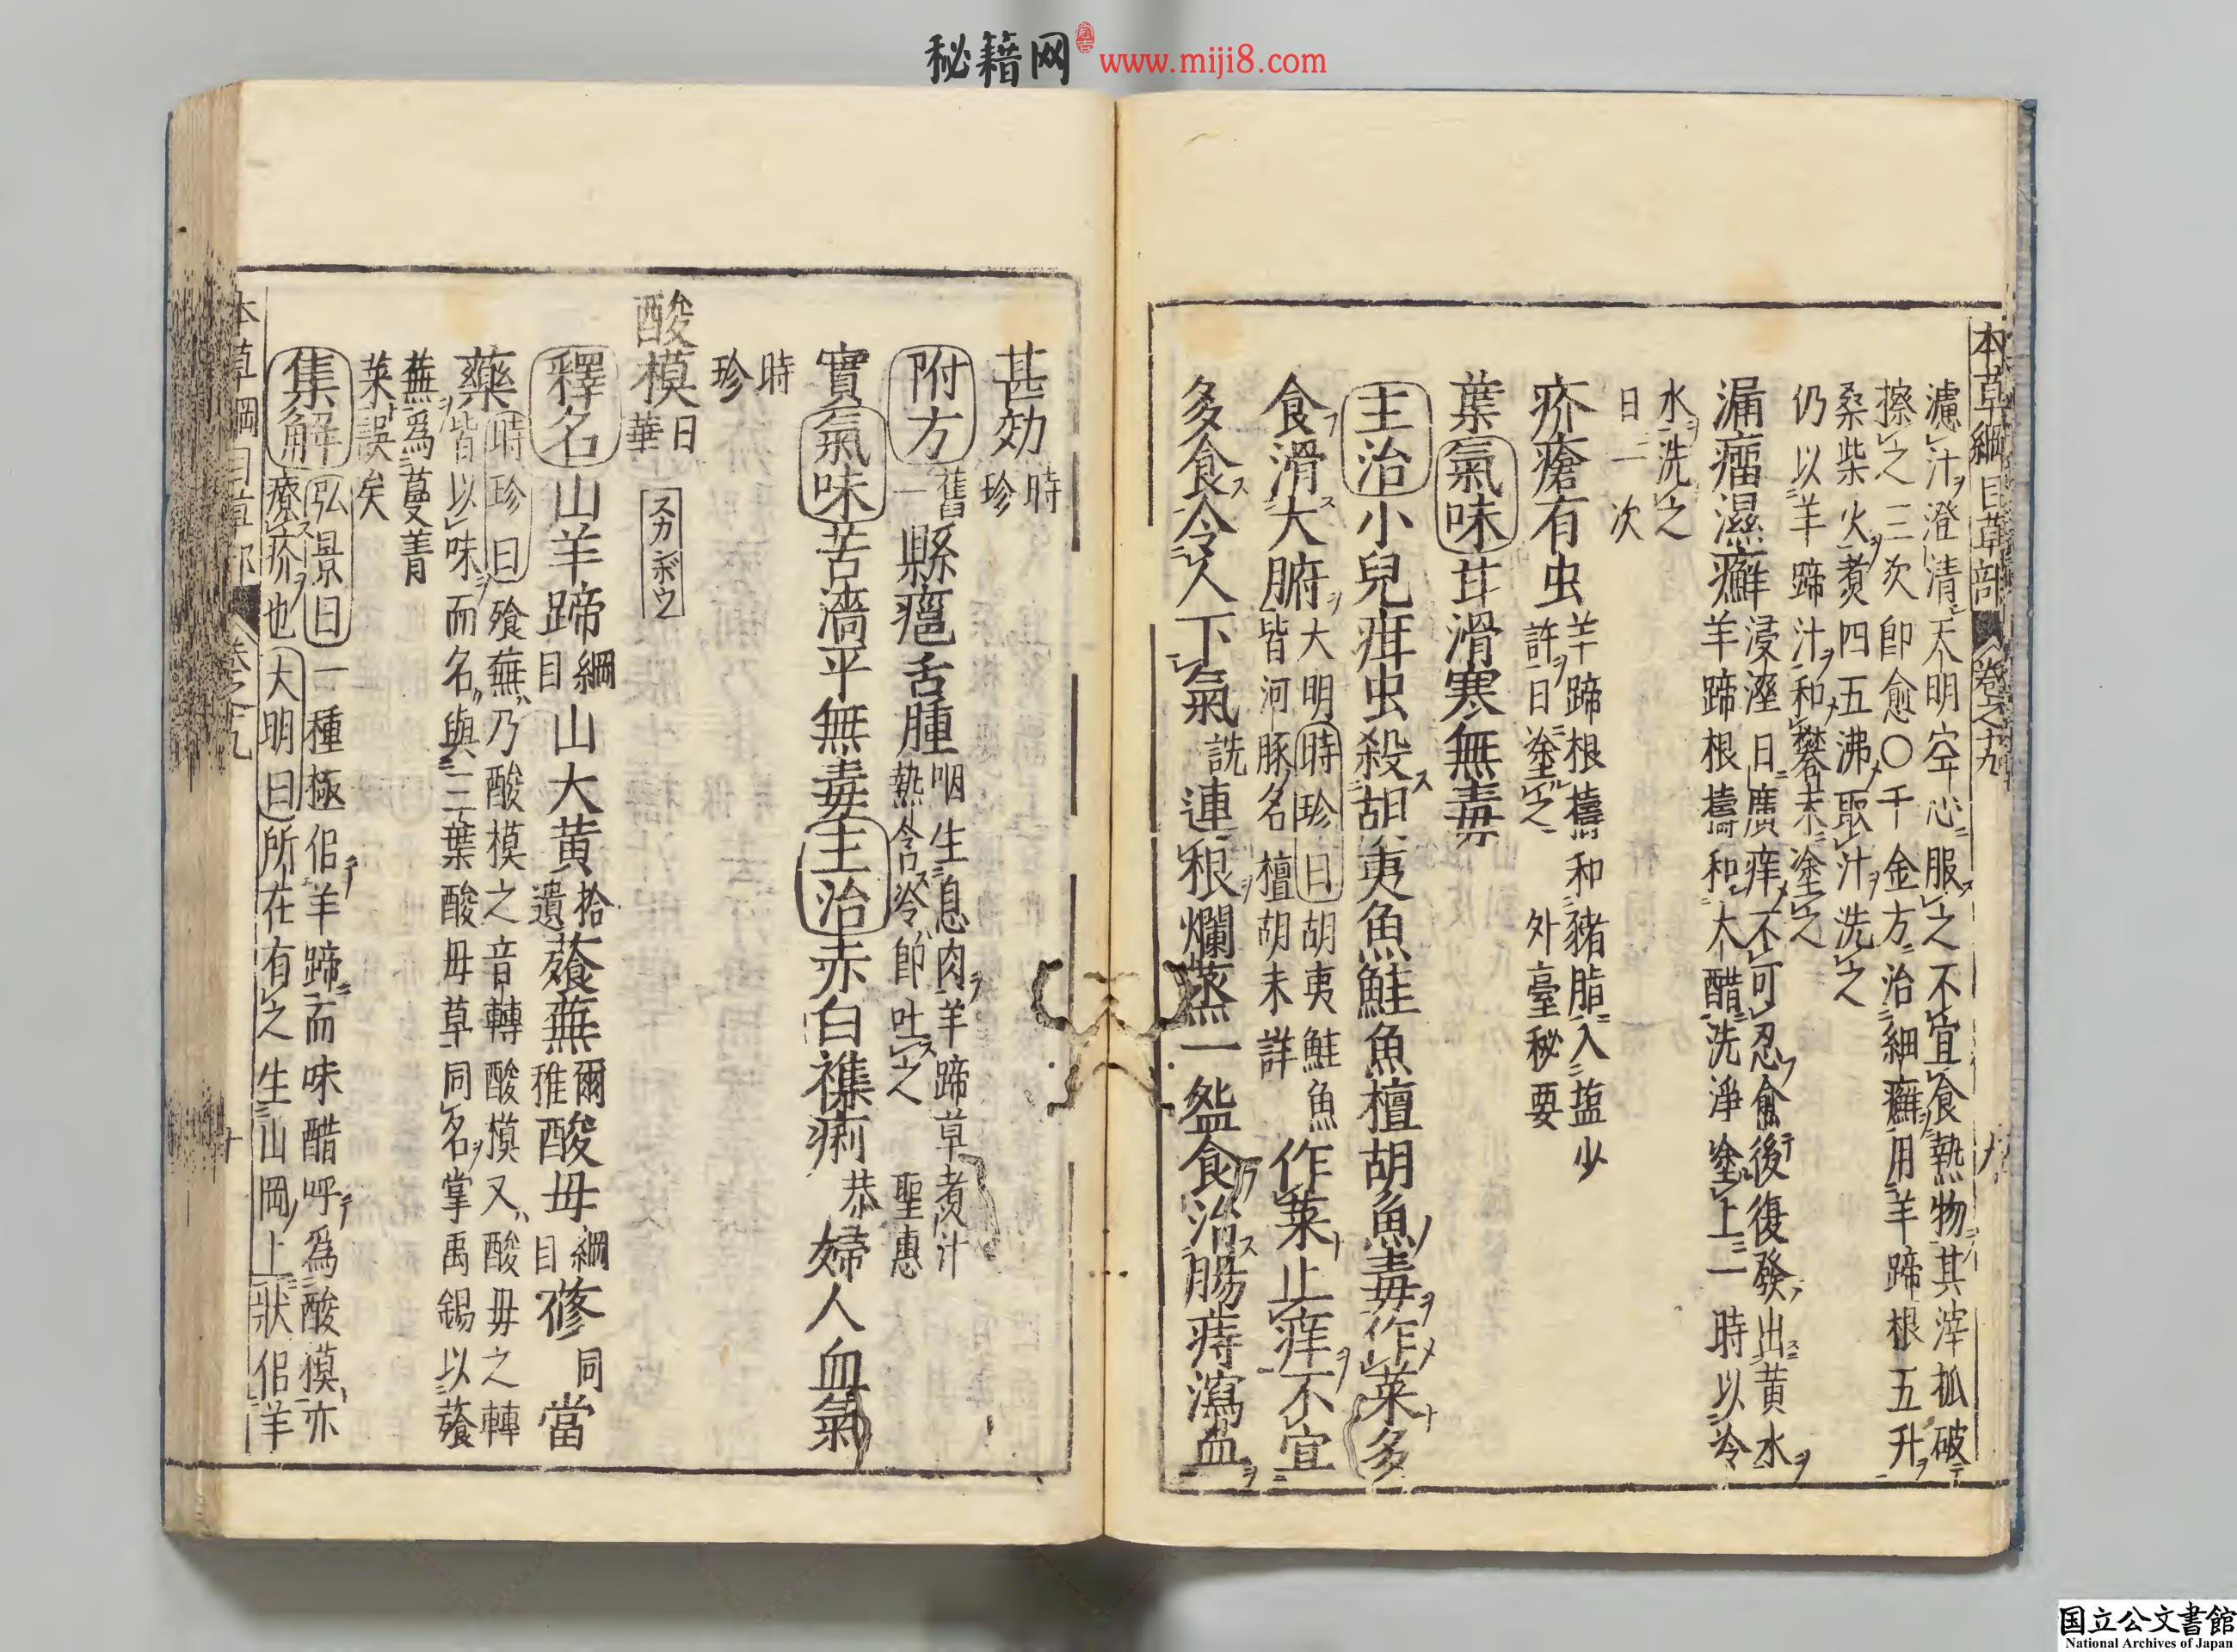 秘籍网 www.miji8.com
本草綱目草部 卷之十九 九
濾汁澄清天明空心服之不宜食熱物其滓抓破
擦之三次即愈〇千金方治細癬用羊蹄根五升
桑柴火煮四五沸取汁洗之
仍以羊蹄汁和礬末塗之
漏瘤濕癬浸溼日廣痒不可忍愈後復發出黄水
羊蹄根擣和大醋洗淨塗上一時以冷
水洗之
日一次
疥瘡有虫羊蹄根擣和豬脂入塩少
許日塗之 外臺秘要
葉氣味甘滑寒無毒
主治小兒疳虫殺胡夷魚鮭魚檀胡魚毒作菜多
食滑大腑大明時珍曰胡夷鮭魚
皆河豚名檀胡未詳作菜止痒不宜
多食令人下氣詵連根爛蒸一盌食治腸痔瀉血
甚効時珍
附方舊一縣癰舌腫咽生息肉羊蹄草煮汁
熱含冷即吐之 聖惠
實氣味苦濇平無毒主治赤白襍痢恭婦人血氣
時珍
酸模日華 スカンボウ
釋名山羊蹄綱目山大黄拾遺蕵蕪爾雅酸母綱目蓚同當
藥時珍曰飱蕪乃酸模之音轉酸模又酸母之轉
皆以味而名與三葉酸母草同名掌禹錫以蕵
蕪爲蔓菁
菜誤矣
集解弘景曰一種極佀羊蹄而味醋呼爲酸模亦
療疥也大明曰所在有之生山岡上狀佀羊
本草綱目草部 卷之十九 十
国立公文書館
National Archives of Japan